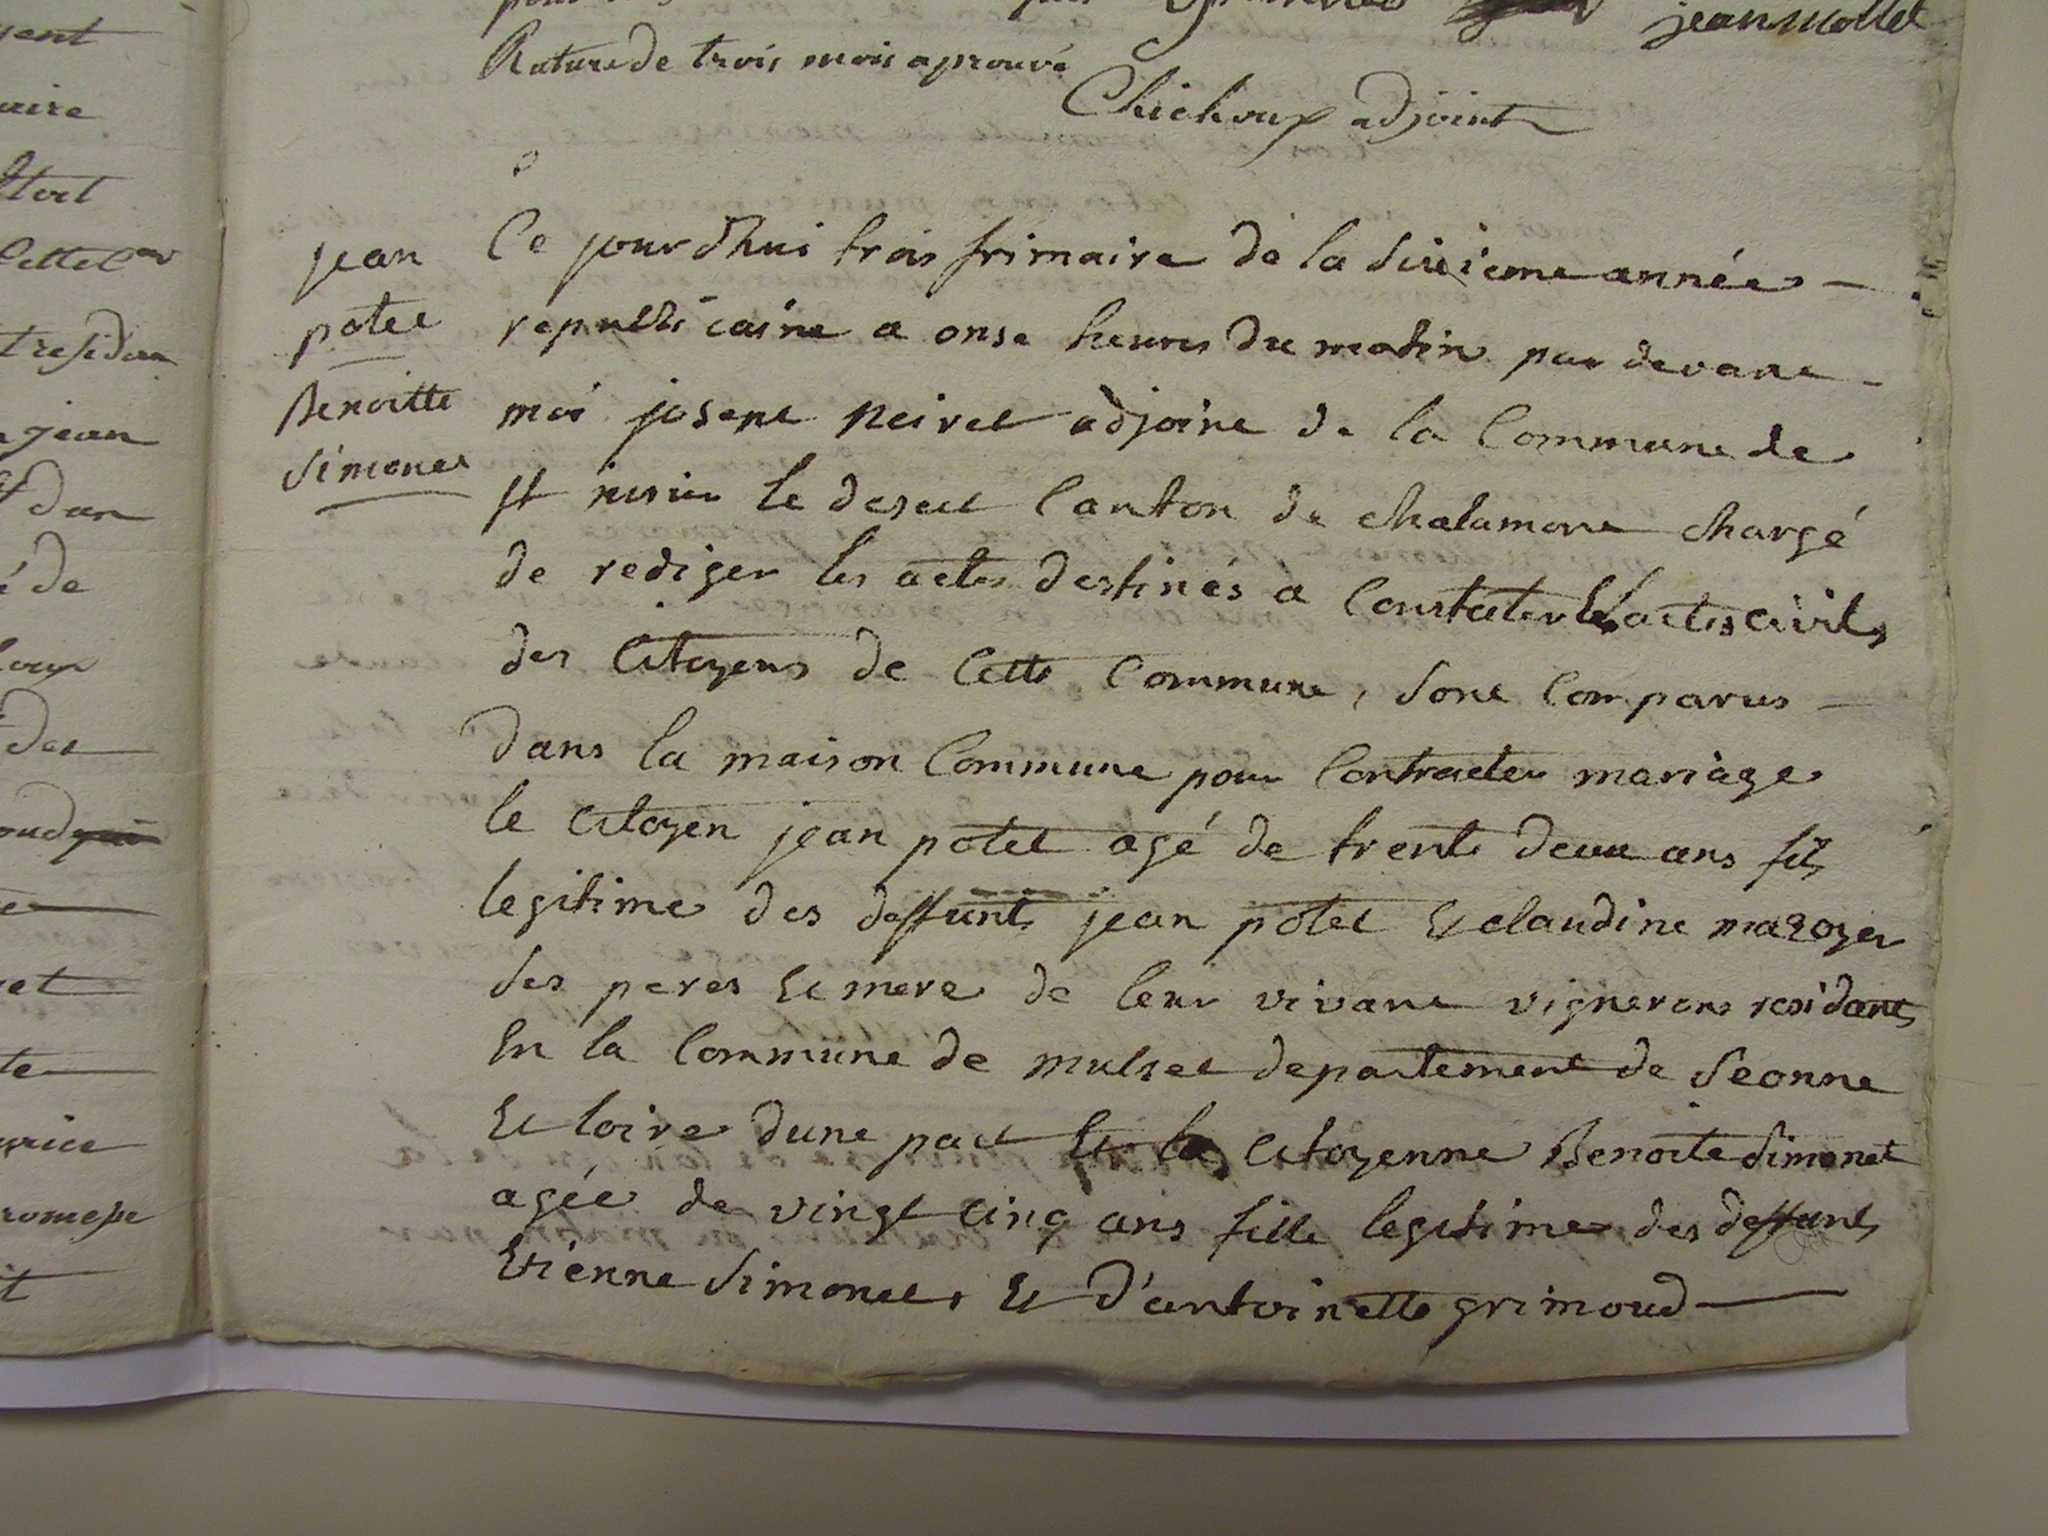 jean mollet
Rature de trois mois aprouvé
adjoint
jean
potet
Benoitte
Simonet
Ce jourd'hui trois frimaire de la sixieme année
republicaine a onse heures du matin par devant
moi josept neiret adjoint de la Commune de
St nisier le desert Canton de chalamont chargé
de rediger les actes destinés a Constater les actes civils
des Citoyens de Cette Commune, sont Comparus
dans la maison Commune pour Contracter mariage
le Citoyen jean potet agé de trente deux ans fils
legitime des deffunts jean potet et claudine mazoyer
ses peres et mere de leur vivant vignerons residants
En la Commune de departement de Seonne
et loire dune part et la Citoyenne Benoite Simonet
agée de vingt cinq ans fille legitime des deffunts
Etienne Simonet, et d'antoinette grimoud
yent
aire
jean
dan
é de
des
et
te
it